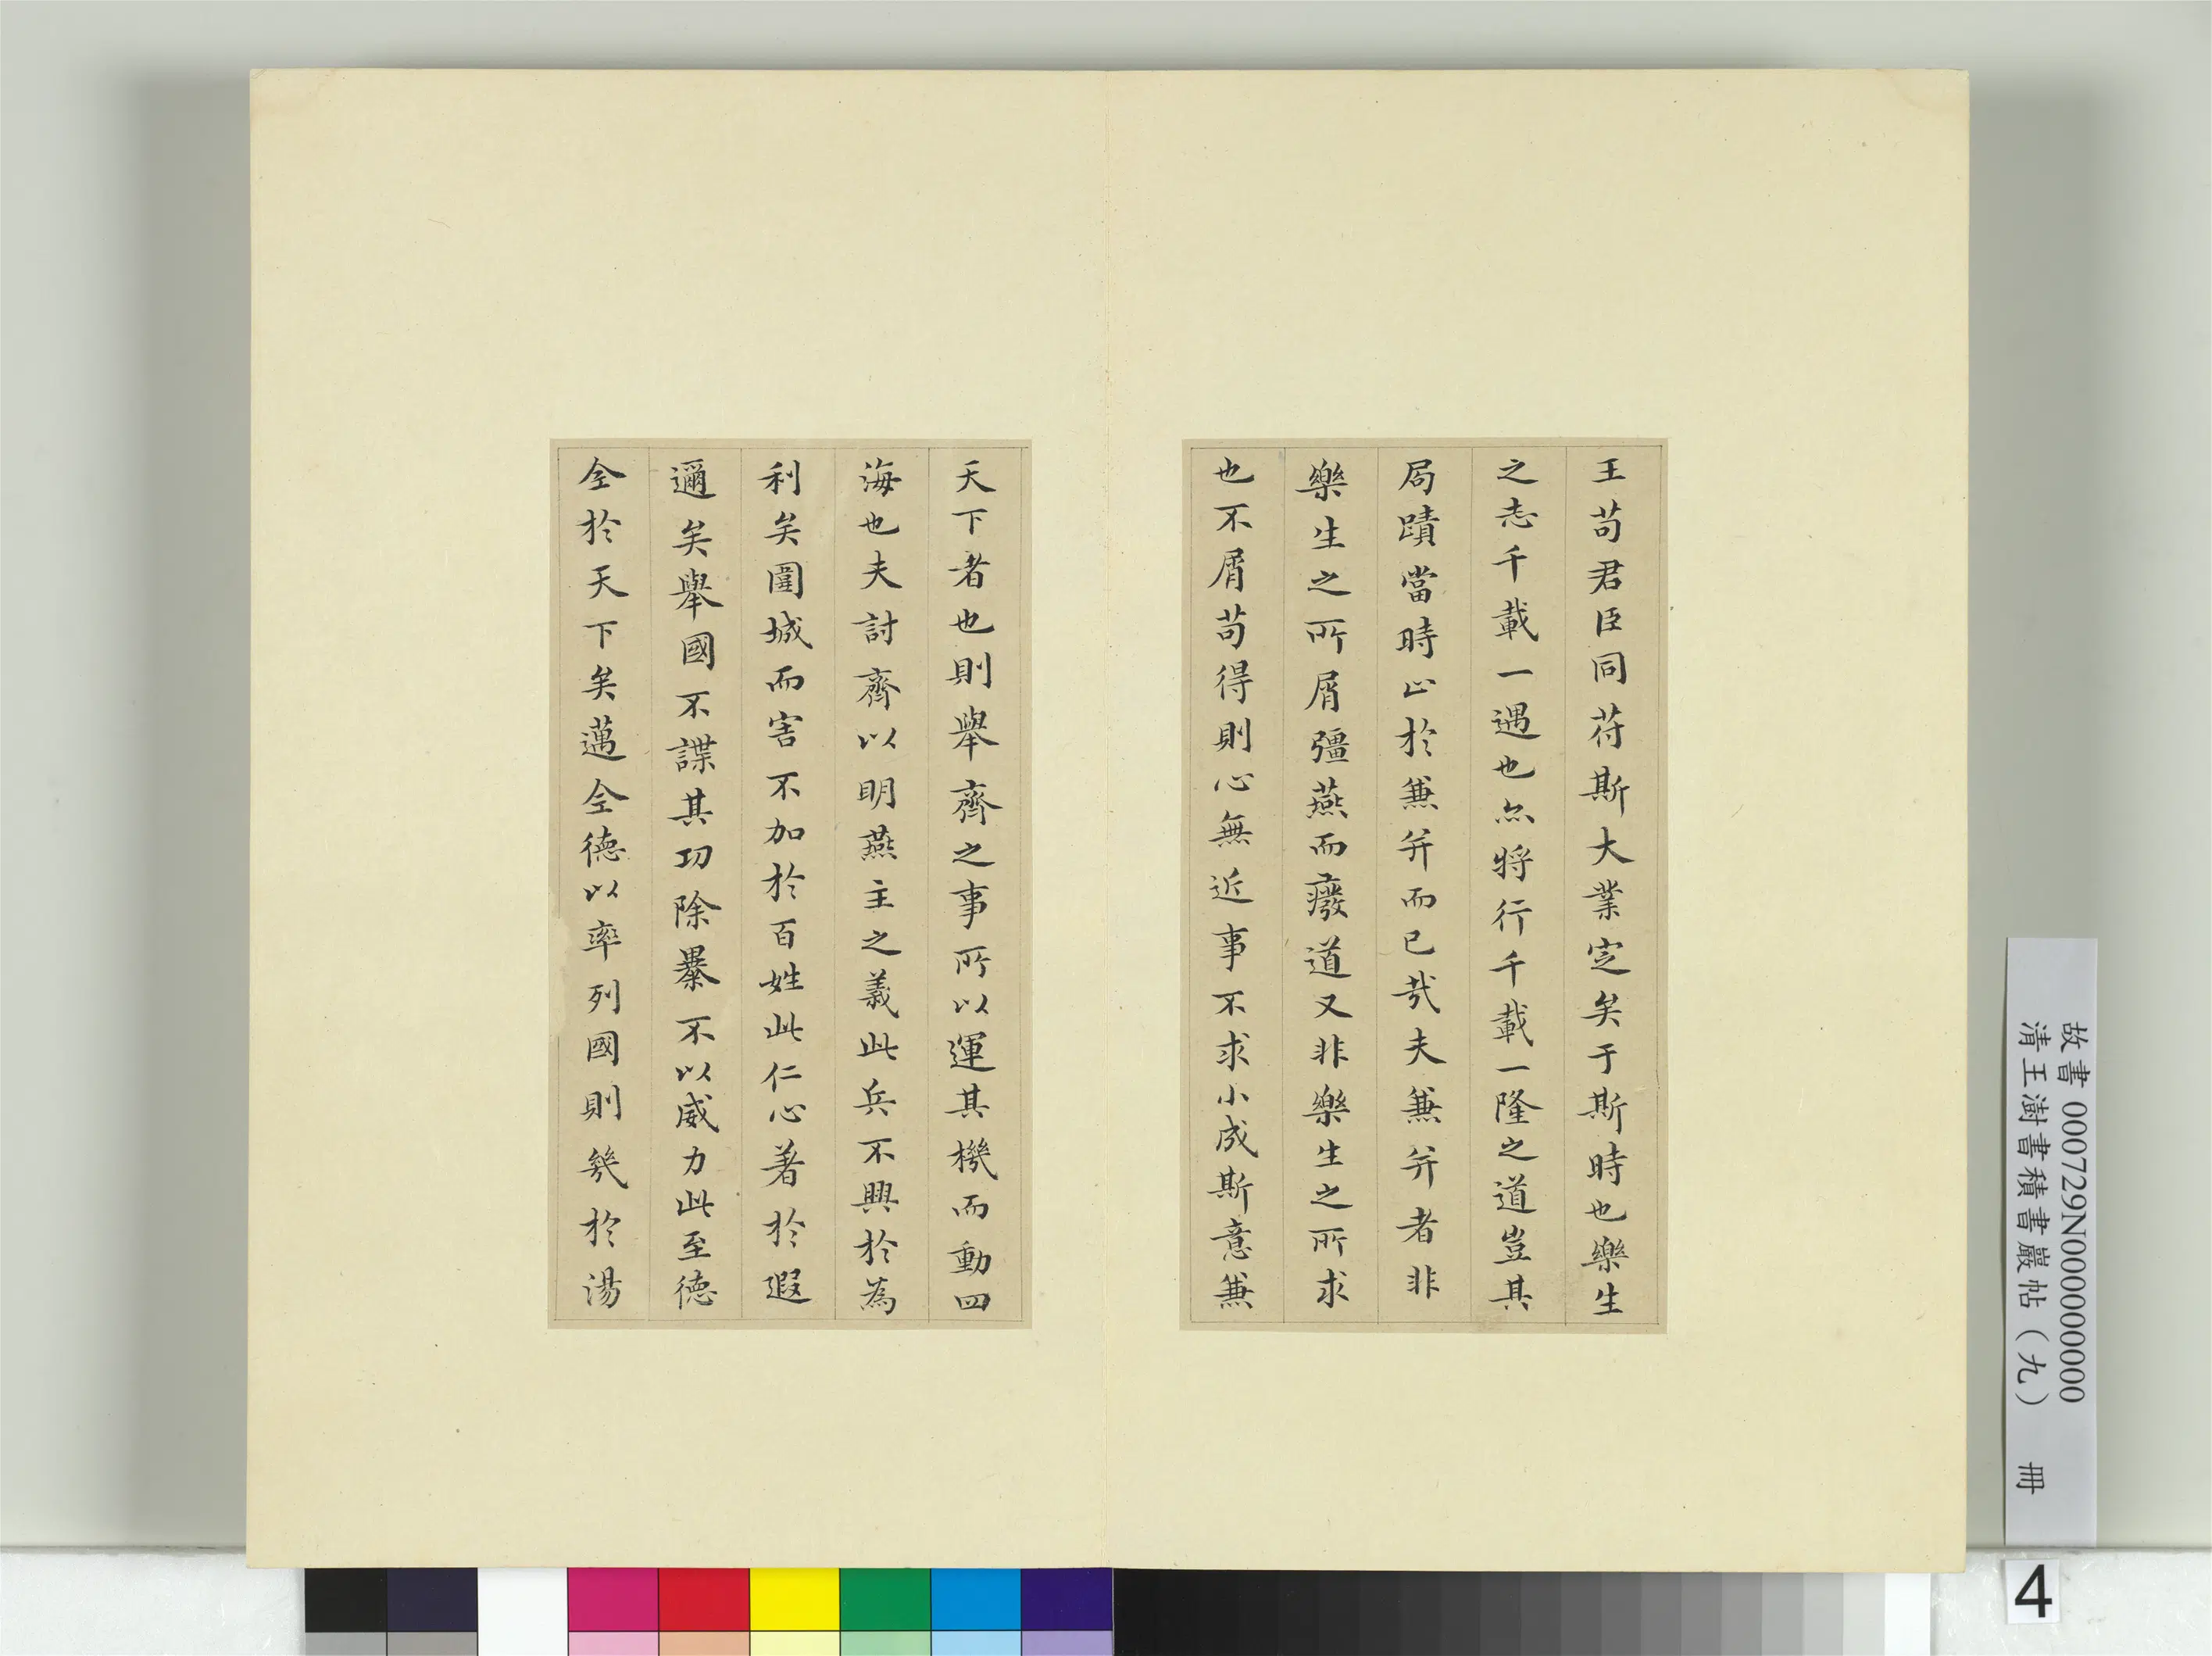 王苟君臣同苻斯大業定矣于斯時也樂生
之志千載一遇也亦將行千載一隆之道豈其
局蹟當時止於兼并而已哉夫兼并者非
樂生之所屑彊燕而癈道又非樂生之所求
也不屑苟得則心無近事不求小成斯意兼
天下者也則舉齊之事所以運其機而動四
海也夫討齊以明燕主之義此兵不興於為
利矣圍城而害不加於百姓此仁心著於遐
邇矣舉國不謀其功除暴不以威力此至德
全於天下矣邁全德以率列國則幾於湯
故書 000729N000000000
清王澍書積書巖帖（九） 冊
4